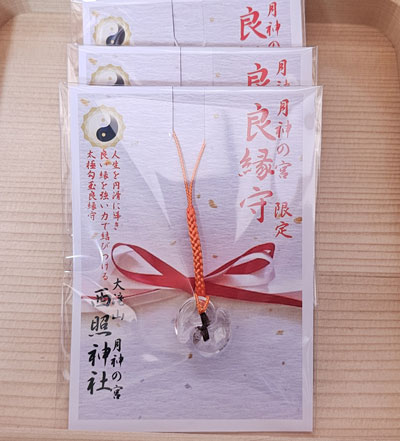 月神の宮 限定
良縁守
人生を円滑に導き
良い縁を強い力で結びつける
太極勾玉良縁守
大滝山 月神の宮
西照神社
月神の宮
良
月神の宮
良